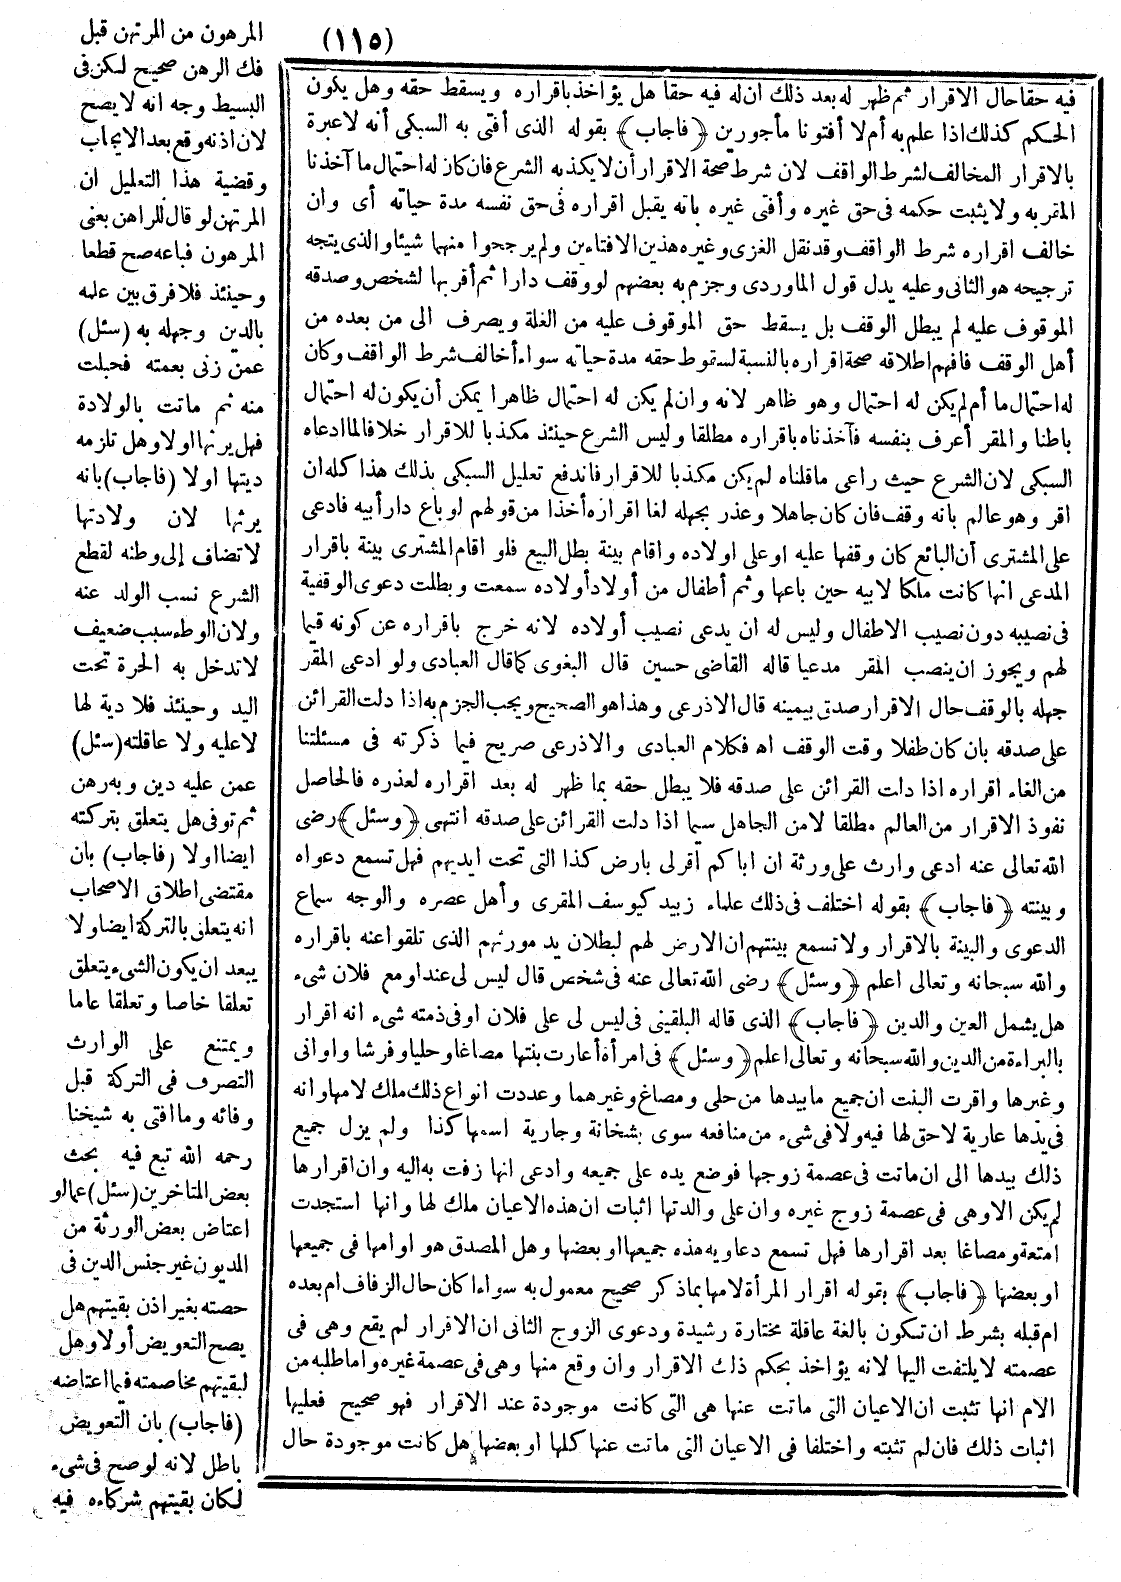 (١١٥)
فيه حقا حال الاقرار ثم ظهر له بعد ذلك ان له فيه حقا هل يؤاخذ باقراره ويسقط حقه وهل يكون
الحكم كذلك اذا علم به أم لا أفتونا مأجورين (فاجاب) بقوله الذى أفتى به السبكى أنه لا عبرة
بالاقرار المخالف لشرط الواقف لان شرط صحة الاقرار أن لا يكذبه الشرع فان كان له احتمال ما آخذنا
المقر به ولا يثبت حكمه فى حق غيره وأفتى غيره بانه يقبل اقراره فى حق نفسه مدة حياته أى وان
خالف اقراره شرط الواقف وقد نقل الغزى وغيره هذين الافتاءين ولم يرجحوا منهما شيئا والذى يتجه
ترجيحه هو الثانى وعليه يدل قول الماوردى وجزم به بعضهم لو وقف دارا ثم أقر بها لشخص وصدقه
الموقوف عليه لم يبطل الوقف بل يسقط حق الموقوف عليه من الغلة ويصرف الى من بعده من
أهل الوقف فافهم اطلاقه صحة اقراره بالنسبة لسقوط حقه مدة حياته سواء أخالف شرط الواقف وكان
له احتمال ما أم لم يكن له احتمال وهو ظاهر لانه وان لم يكن له احتمال ظاهرا يمكن أن يكون له احتمال
باطنا والمقر أعرف بنفسه فآخذناه باقراره مطلقا وليس الشرع حينئذ مكذبا للاقرار خلافا لما ادعاه
السبكى لان الشرع حيث راعى ما قلناه لم يكن مكذبا للاقرار فاندفع تعليل السبكى بذلك هذا كله ان
اقر وهو عالم بانه وقف فان كان جاهلا وعذر بجهله لغا اقراره أخذا من قولهم لو باع دار أبيه فادعى
على المشترى أن البائع كان وقفها عليه او على اولاده واقام بينة بطل البيع فلو اقام المشترى بينة باقرار
المدعى انها كانت ملكا لابيه حين باعها وثم أطفال من أولاد أولاده سمعت وبطلت دعوى الوقفية
فى نصيبه دون نصيب الاطفال وليس له ان يدعى نصيب أولاده لانه خرج باقراره عن كونه قيما
لهم ويجوز ان ينصب المقر مدعيا قاله القاضى حسين قال البغوى كما قال العبادى ولو ادعى المقر
جهله بالوقف حال الاقرار صدق بيمينه قال الاذرعى وهذا هو الصحيح ويجب الجزم به اذا دلت القرائن
على صدقه بان كان طفلا وقت الوقف اه فكلام العبادى والاذرعى صريح فيما ذكرته فى مسئلتنا
من الغاء اقراره اذا دلت القرائن على صدقه فلا يبطل حقه بما ظهر له بعد اقراره لعذره فالحاصل
نفوذ الاقرار من العالم مطلقا لا من الجاهل سيما اذا دلت القرائن على صدقه انتهى (وسئل) رضى
الله تعالى عنه ادعى وارث على ورثة ان اباكم أقر لى بارض كذا التى تحت ايديهم فهل تسمع دعواه
وبينته (فاجاب) بقوله اختلف فى ذلك علماء زبيد كيوسف المقرى وأهل عصره والوجه سماع
الدعوى والبينة بالاقرار ولا تسمع بينتهم ان الارض لهم لبطلان يد مورثهم الذى تلقوا عنه باقراره
والله سبحانه وتعالى اعلم (وسئل) رضى الله تعالى عنه فى شخص قال ليس لى عند او مع فلان شىء
هل يشمل العين والدين (فاجاب) الذى قاله البلقينى فى ليس لى على فلان او فى ذمته شىء انه اقرار
بالبراءة من الدين والله سبحانه وتعالى اعلم (وسئل) فى امرأة أعارت بنتها مصاغا وحليا وفرشا واوانى
وغيرها واقرت البنت ان جميع ما بيدها من حلى ومصاغ وغيرهما وعددت انواع ذلك ملك لامها وانه
فى يدها عارية لا حق لها فيه ولا فى شىء من منافعه سوى بشخانة وجارية اسمها كذا ولم يزل جميع
ذلك بيدها الى ان ماتت فى عصمة زوجها فوضع يده على جميعه وادعى انها زفت به اليه وان اقرارها
لم يكن الا وهى فى عصمة زوج غيره وان على والدتها اثبات ان هذه الاعيان ملك لها وانها استجدت
امتعة ومصاغا بعد اقرارها فهل تسمع دعاويه هذه جميعها او بعضها وهل المصدق هو او امها فى جميعها
او بعضها (فاجاب) بقوله اقرار المرأة لامها بما ذكر صحيح معمول به سواء اكان حال الزفاف ام بعده
ام قبله بشرط ان تكون بالغة عاقلة مختارة رشيدة ودعوى الزوج الثانى ان الاقرار لم يقع وهى فى
عصمته لا يلتفت اليها لانه يؤاخذ بحكم ذلك الاقرار وان وقع منها وهى فى عصمة غيره واما طلبه من
الام انها تثبت ان الاعيان التى ماتت عنها هى التى كانت موجودة عند الاقرار فهو صحيح فعليها
اثبات ذلك فان لم تثبته واختلفا فى الاعيان التى ماتت عنها كلها او بعضها هل كانت موجودة حال
المرهون من المرتهن قبل
فك الرهن صحيح لكن فى
البسيط وجه انه لا يصح
لان اذنه وقع بعد الايجاب
وقضية هذا التعليل ان
المرتهن لو قال للراهن بعنى
المرهون فباعه صح قطعا
وحينئذ فلا فرق بين علمه
بالدين وجهله به (سئل)
عمن زنى بعمته فحبلت
منه ثم ماتت بالولادة
فهل يرثها اولا وهل تلزمه
ديتها اولا (فاجاب) بانه
يرثها لان ولادتها
لا تضاف إلى وطئه لقطع
الشرع نسب الولد عنه
ولان الوطء سبب ضعيف
لا تدخل به الحرة تحت
اليد وحينئذ فلا دية لها
لا عليه ولا عاقلته (سئل)
عمن عليه دين وبه رهن
ثم توفى هل يتعلق بتركته
ايضا اولا (فاجاب) بان
مقتضى اطلاق الاصحاب
انه يتعلق بالتركة ايضا ولا
يبعد ان يكون الشىء يتعلق
تعلقا خاصا وتعلقا عاما
ويمتنع على الوارث
التصرف فى التركة قبل
وفائه وما افتى به شيخنا
رحمه الله تبع فيه بحث
بعض المتاخرين (سئل) عما لو
اعتاض بعض الورثة من
المديون غير جنس الدين فى
حصته بغير اذن بقيتهم هل
يصح التعويض أولا وهل
لبقيتهم مخاصمته فيما اعتاضه
(فاجاب) بان التعويض
باطل لانه لو صح فى شىء
لكان بقيتهم شركاءه فيه